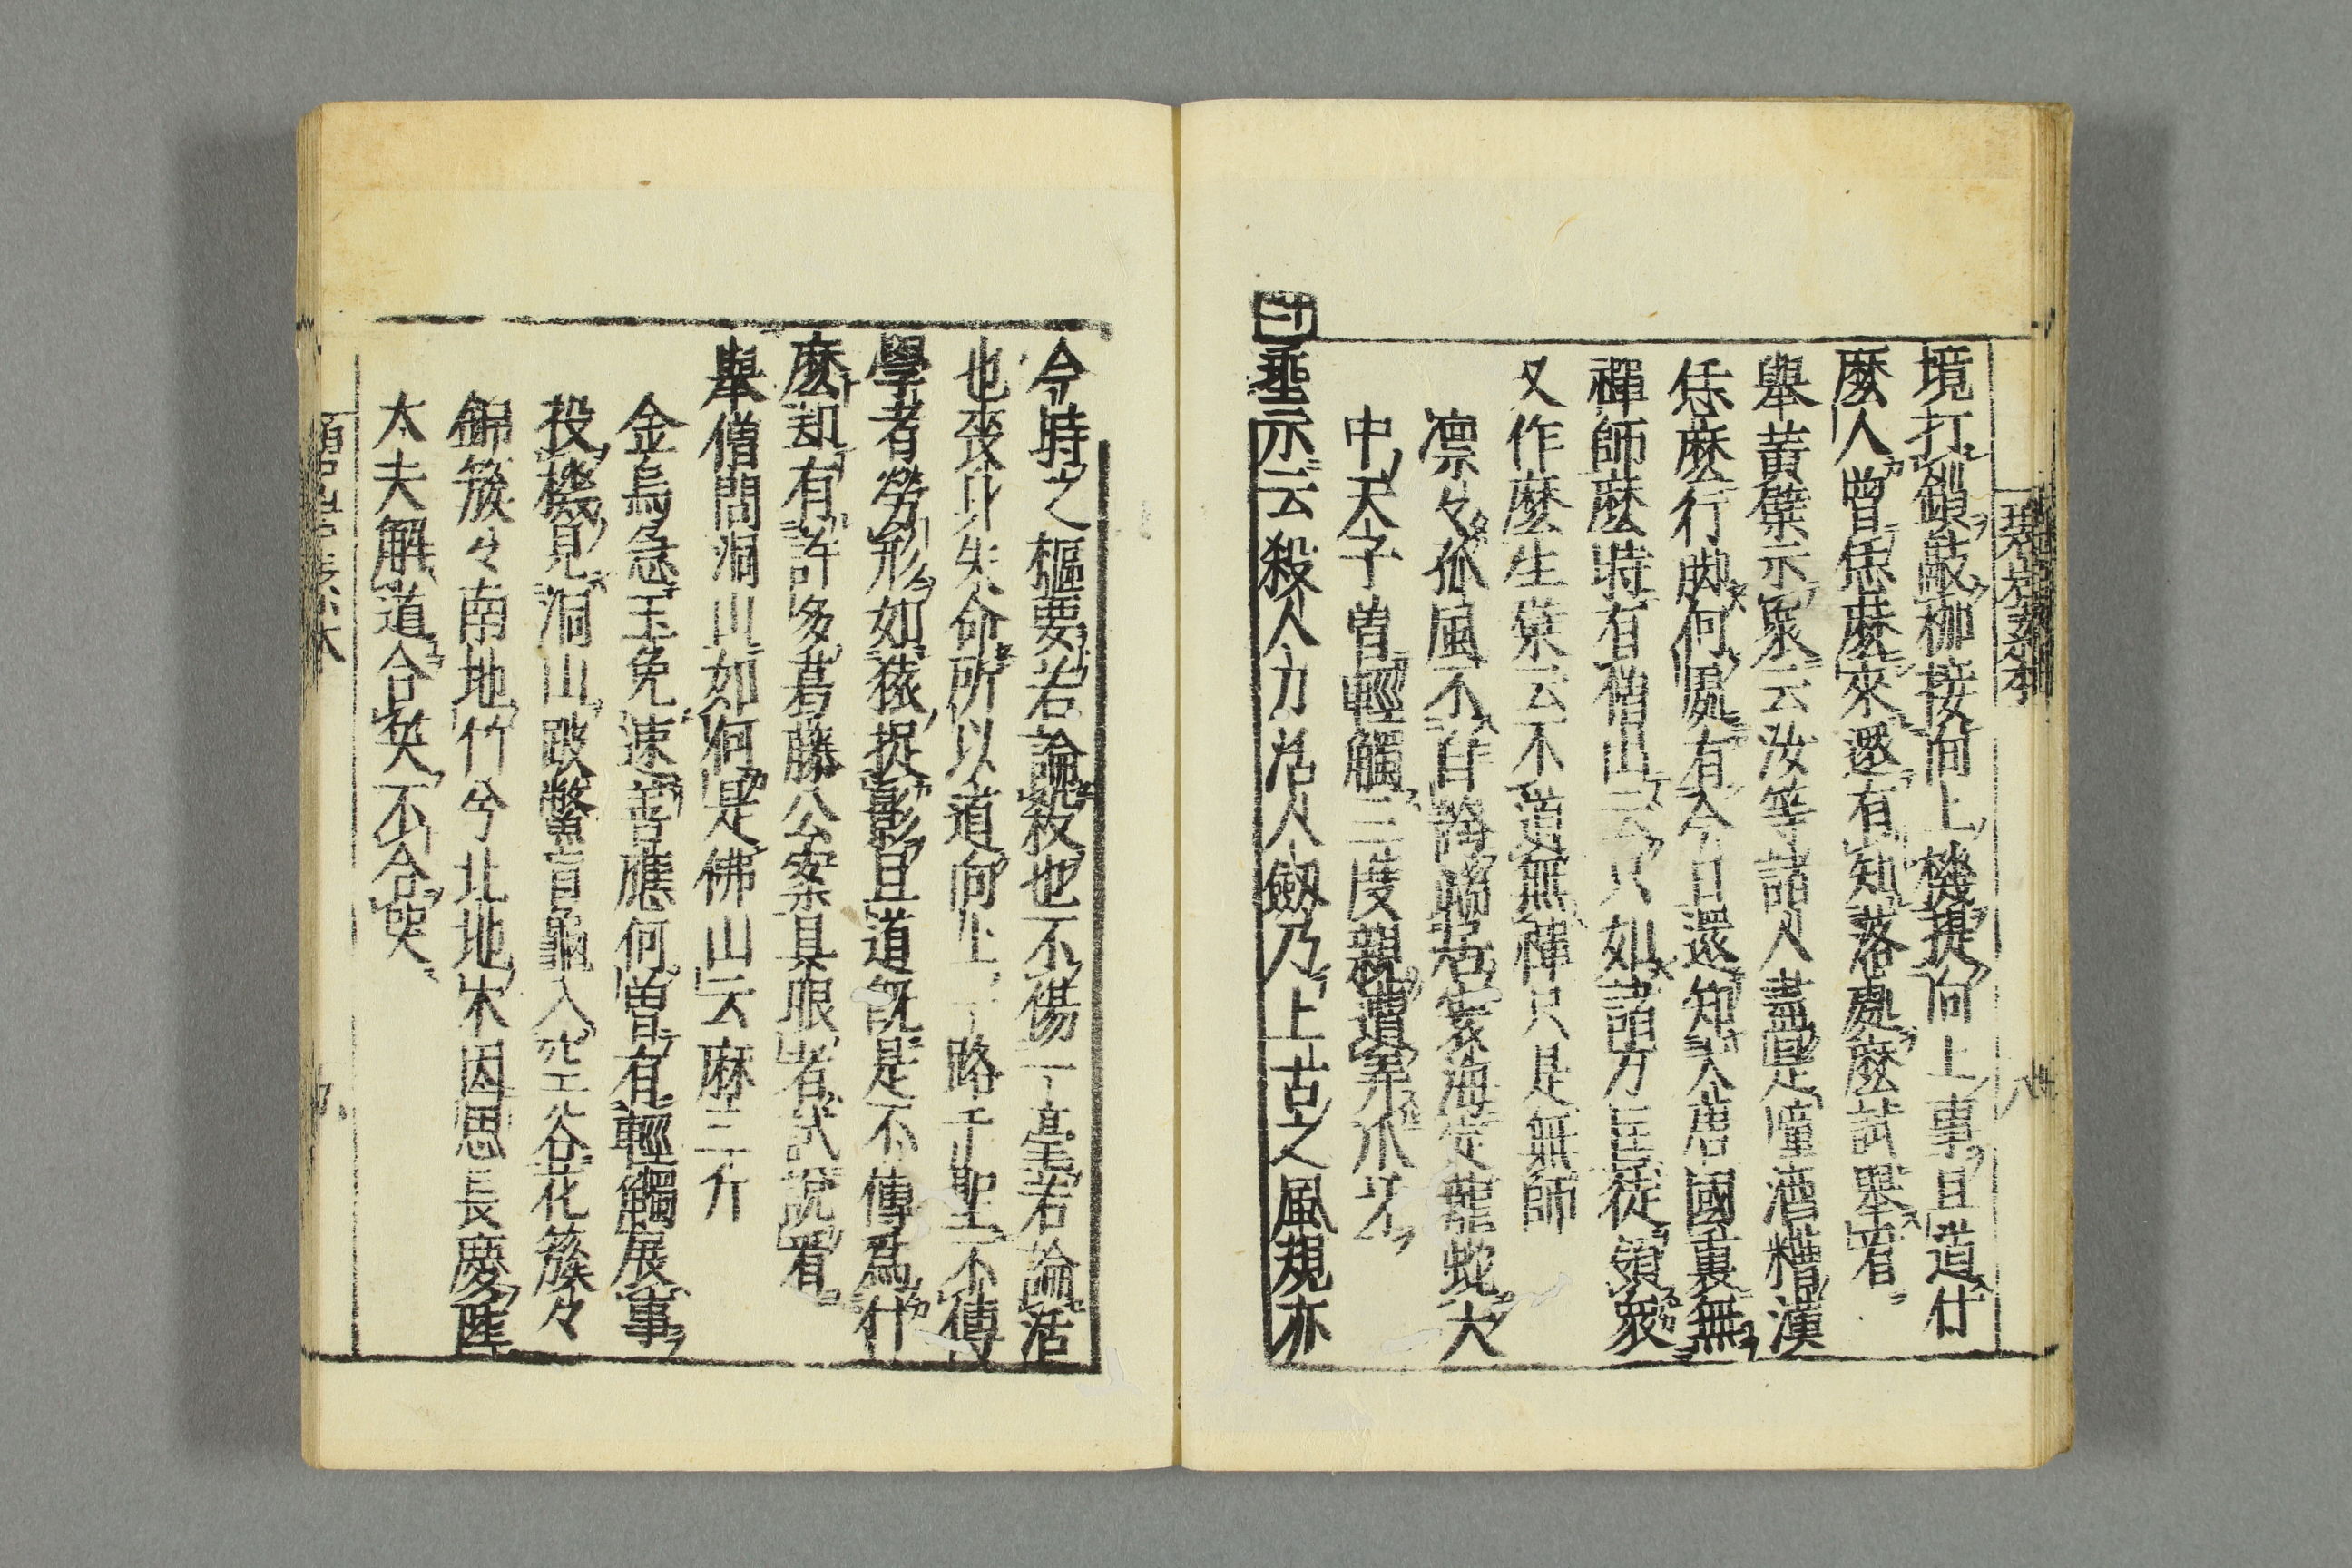 境打鎖敲枷接向上機提向上事且道什
麼人曾恁麼來還有知落處麼試舉看
舉黃檗示衆云汝等諸人盡是噇酒糟漢
恁麼行脚何處有今日還知大唐國裏無
禪師麼時有僧出云只如諸方匡徒領衆
又作麼生檗云不道無禪只是無師
凛々孤風不自誇端居寰海定龍蛇大
中天子曾輕觸三度親遭弄爪牙
垂示云殺人刀活人劔乃上古之風規亦
今時之樞要若論殺也不傷一毫若論活
也喪身失命所以道向上一路千聖不傳
學者勞形如猿捉影且道既是不傳爲什
麼却有許多葛藤公案具眼者試說看
舉僧問洞山如何是佛山云麻三斤
金烏急玉兔速善應何曾有輕觸展事
投機見洞山跛鼈盲龜入空谷花簇々
錦簇々南地竹兮北地木因思長慶陸
大夫解道合笑不合哭